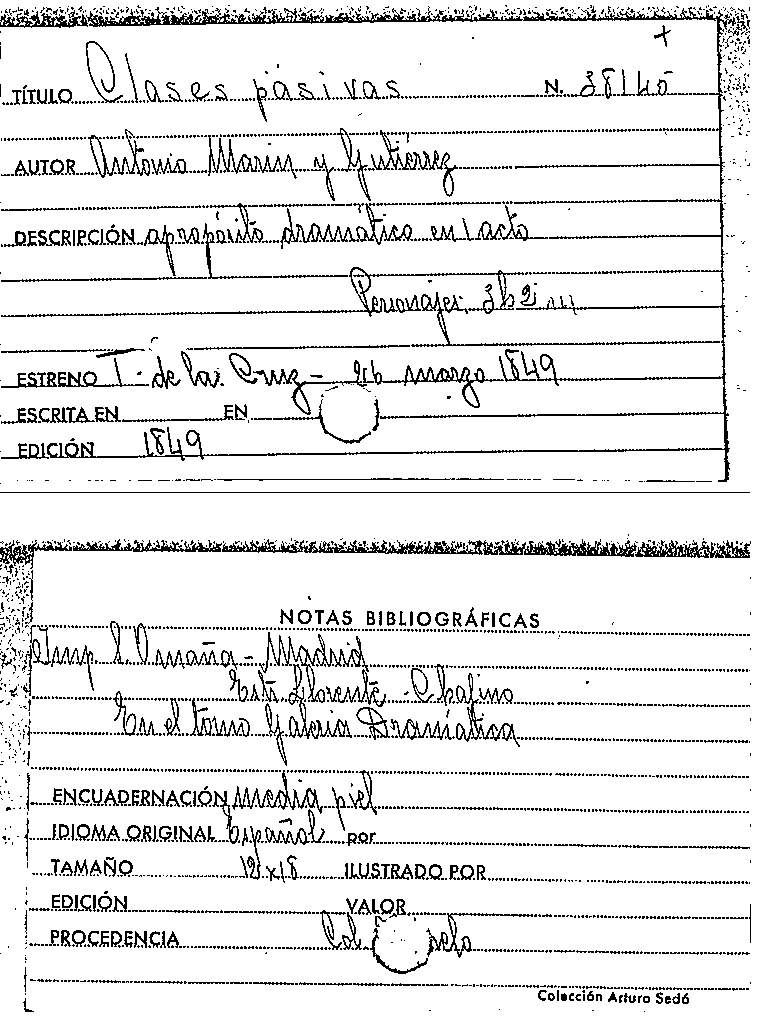 +
TÍTULO Clases pasivas N. 38145
AUTOR Antonio Marin y Gutiérrez
DESCRIPCIÓN apropósito dramático en 1 acto
Personajes, 3h 2m
ESTRENO T. de la Cruz - 26 marzo 1849
ESCRITA EN EN
EDICIÓN 1849
NOTAS BIBLIOGRÁFICAS
Imp S. Omaña - Madrid
Llorente
En el tomo Galeria Dramática
ENCUADERNACIÓN media piel
IDIOMA ORIGINAL Español por
TAMAÑO 12x18 ILUSTRADO POR
EDICIÓN VALOR
PROCEDENCIA Col
Colección Arturo Sedó